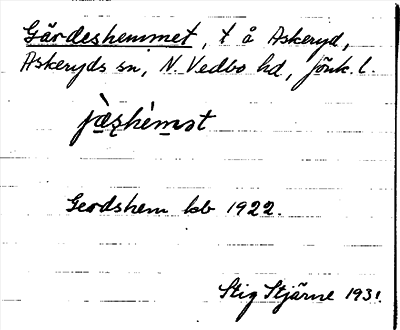 Gärdeshemmet, t å Askeryd,
Askeryds sn, N. Vedbo hd, Jönk. l.
Gerdshem kb 1922.
Stig Stjärne 1931.